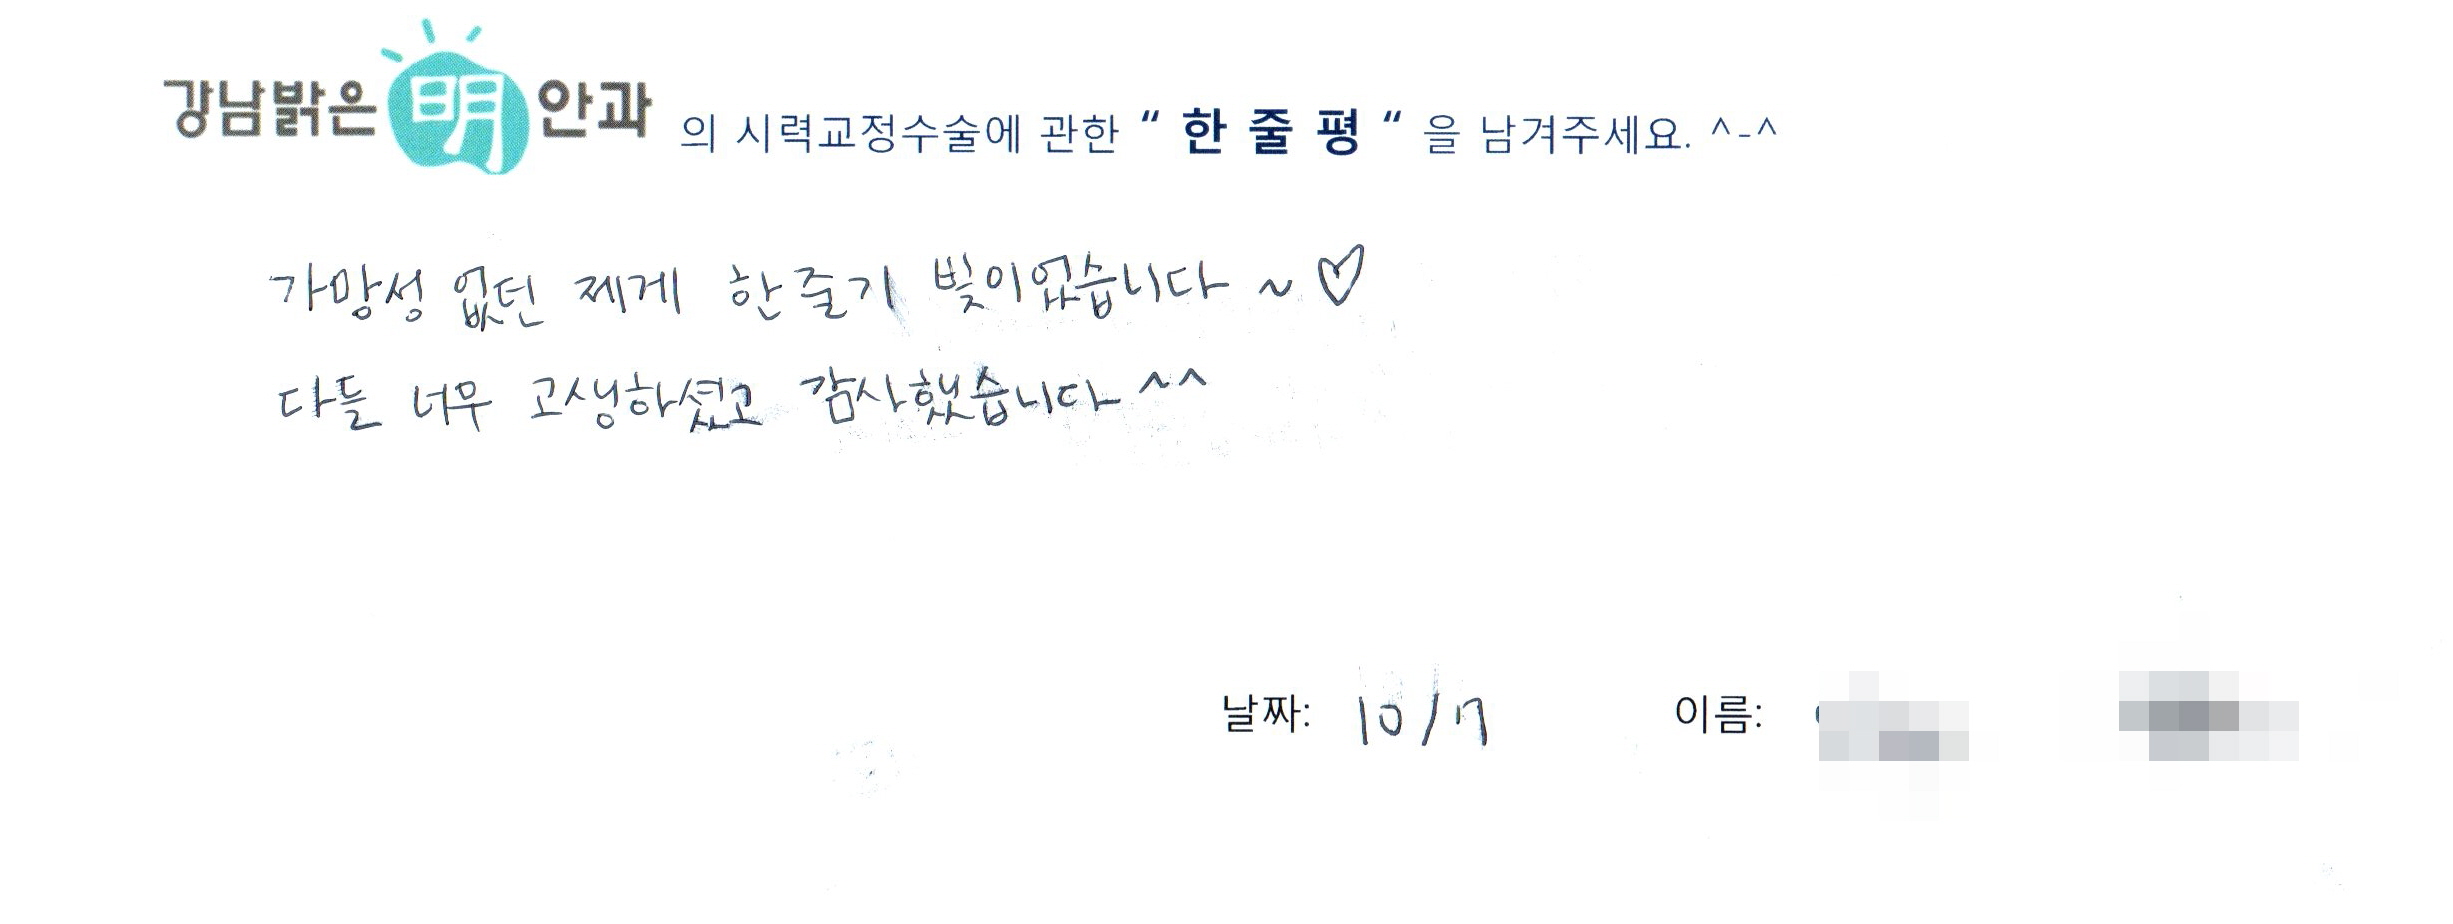 강남밝은 明 안과 의 시력교정수술에 관한 “ 한 줄 평 “ 을 남겨주세요. ^-^
가망성 없던 제게 한줄기 빛이었습니다 ~ ♡
다들 너무 고생하셨고 감사했습니다 ^^
날짜: 10/7 이름: